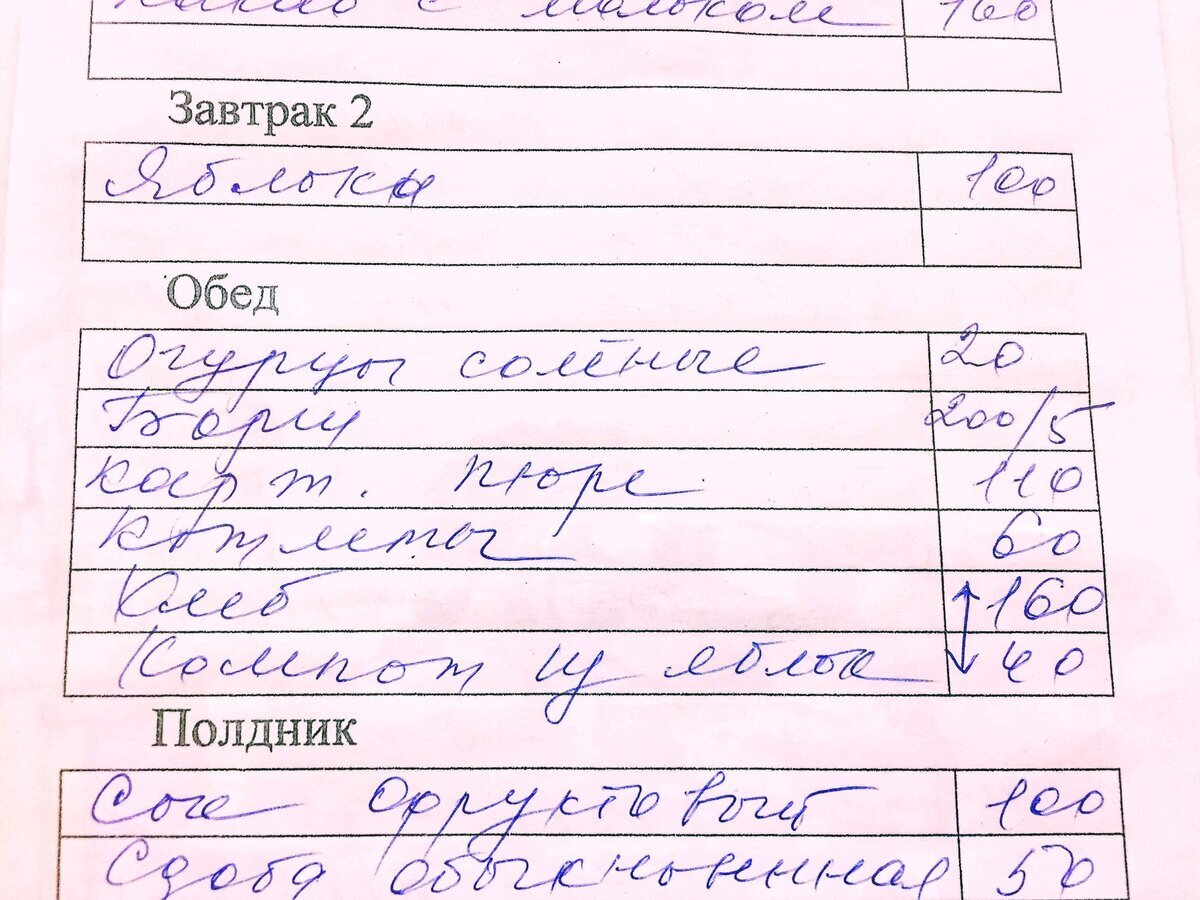 какао с молоком 160
Завтрак 2
Яблоки 100
Обед
Огурцы солёные 20
Борщ 200/5
карт. пюре 110
котлеты 60
Хлеб 160
Компот из яблок 40
Полдник
Сок фруктовый 100
Сдоба обыкновенная 50